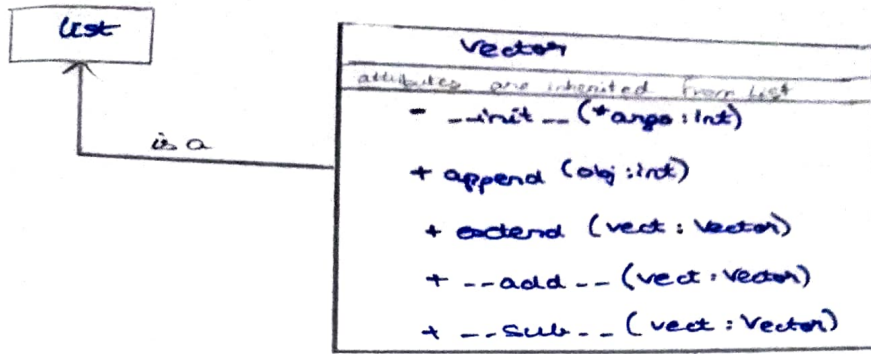 list
is a
Vector
attributes are inherited from list
- __init__ (*args: Int)
+ append (obj: int)
+ extend (vect: Vector)
+ __add__ (vect: Vector)
+ __sub__ (vect: Vector)